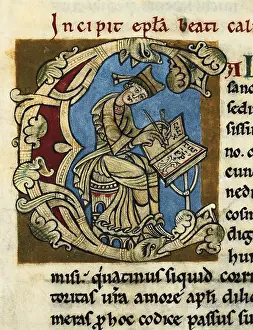 Incipit epła beati cal
AL
sanc
sedi
sissi
no. c
eun
nedi
cosm
dig
hun
misi. q̃atinus siquid corr
toritas ur̃a amore apłi dili
meras ꝓ hoc codice passus su